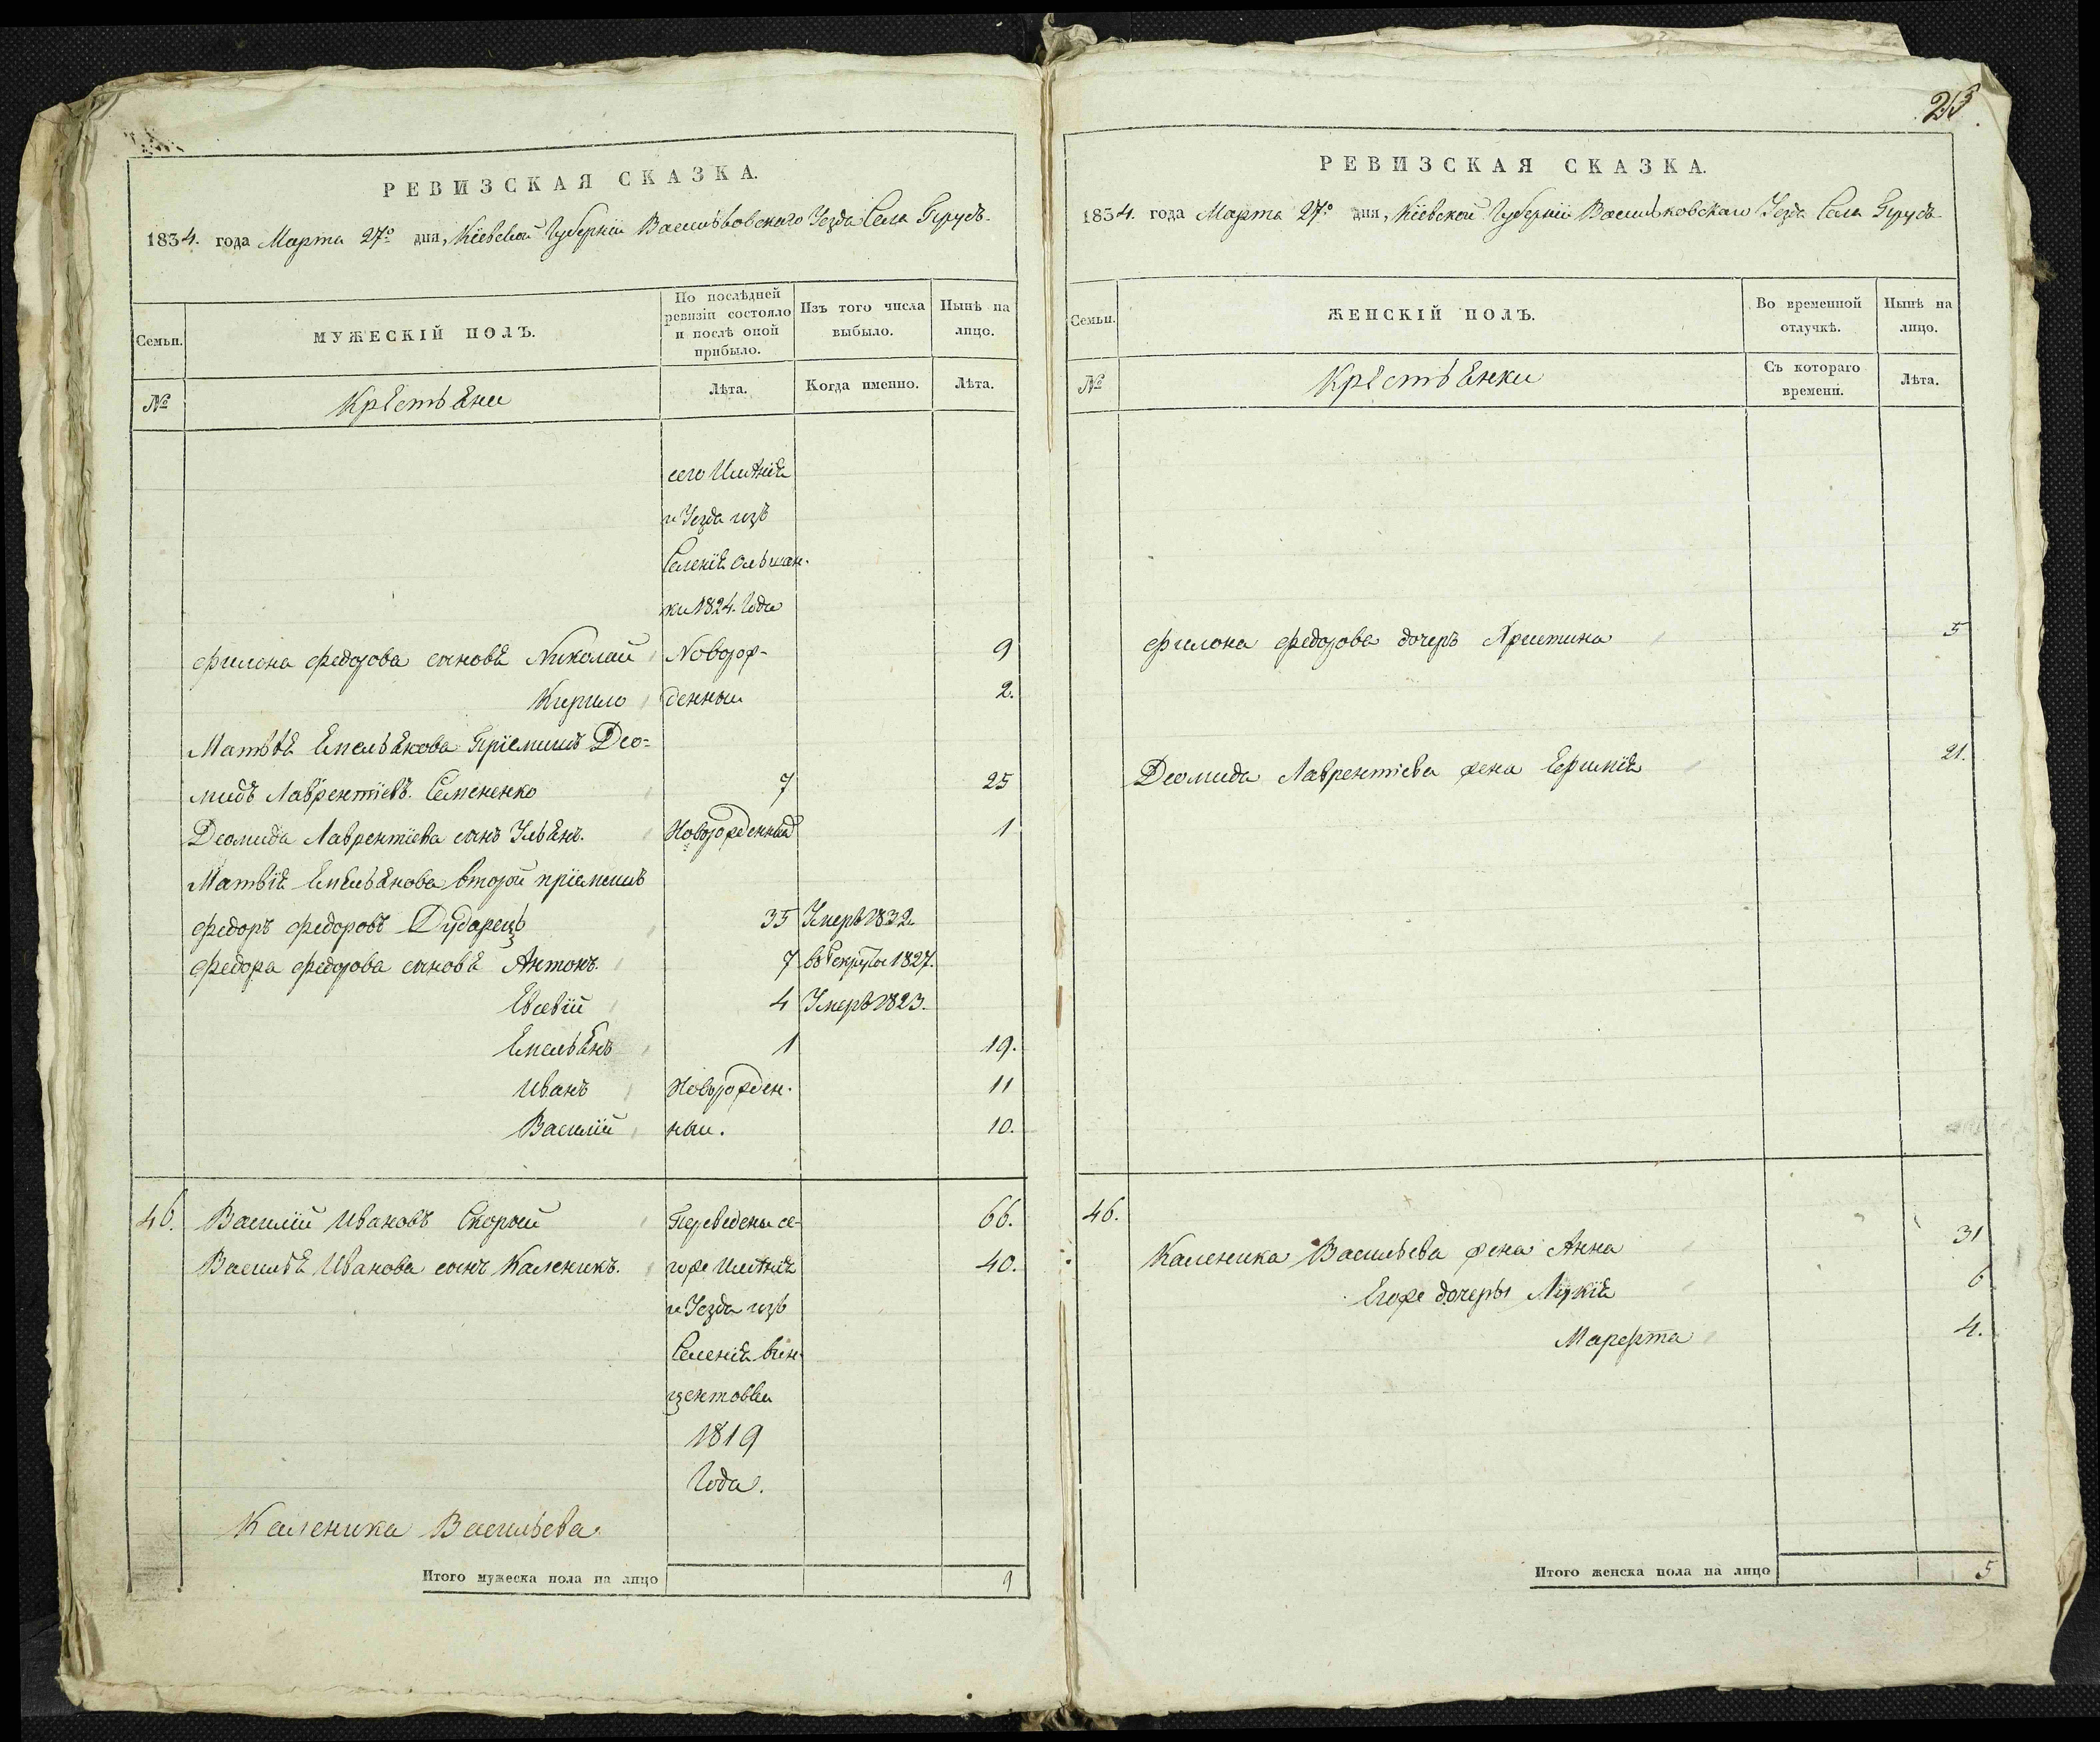 РЕВИЗСКАЯ СКАЗКА.
1834. года Марта 27º дня, Кіевской Губерніи Васильковскаго Уезда Села Прусъ-
Семьи.
МУЖЕСКІЙ ПОЛЪ.
По послѣдней ревизіи состояло и послѣ оной прибыло.
Изъ того числа выбыло.
Нынѣ на лицо.
№
Крестьяни
Лѣта.
Когда именно.
Лѣта.
сего Имѣнія
и Уезда изъ
Селенія Ольшан-
ки 1824. Года
Филона Федорова сыновя Николай Новорож- 9
Кирило денныи 2.
Матвѣя Емельянова Пріемишъ Део=
мидъ Лаврентіевъ Семененко 7 25
Деомида Лаврентіева сынъ Ульянъ. Новорожденный 1
Матвія Емельянова второй пріемишъ
Федоръ Федоровъ Дударецъ 35 Умеръ 1832.
Федора Федорова сыновя Антонъ. 7 въ рекруты 1827.
Евсевій 4 Умеръ 1823.
Емельянъ 1 19.
Иванъ Новорожден- 11
Василій ныи. 10.
46. Василій Ивановъ Скорый Переведены се- 66.
Василія Иванова сынъ Каленикъ. гоже Имѣнія 40.
и Уезда изъ
Селенія Вин-
центовки
1819
Года.
Каленика Васильева
Итого мужеска пола на лицо 9
РЕВИЗСКАЯ СКАЗКА.
1834. года Марта 27º дня, Кіевской Губерніи Васильковскаго Уезда Села Прусъ-
Семьи.
ЖЕНСКІЙ ПОЛЪ.
Во временной отлучкѣ.
Нынѣ на лицо.
№
Крестьянки
Съ котораго времени.
Лѣта.
Филона Федорова дочеръ Христина 5
Деомида Лаврентіева жена 21.
46.
Каленика Васильева жена Анна 31
Егоже дочеры Лукія 6
Марфта 4.
Итого женска пола на лицо 5